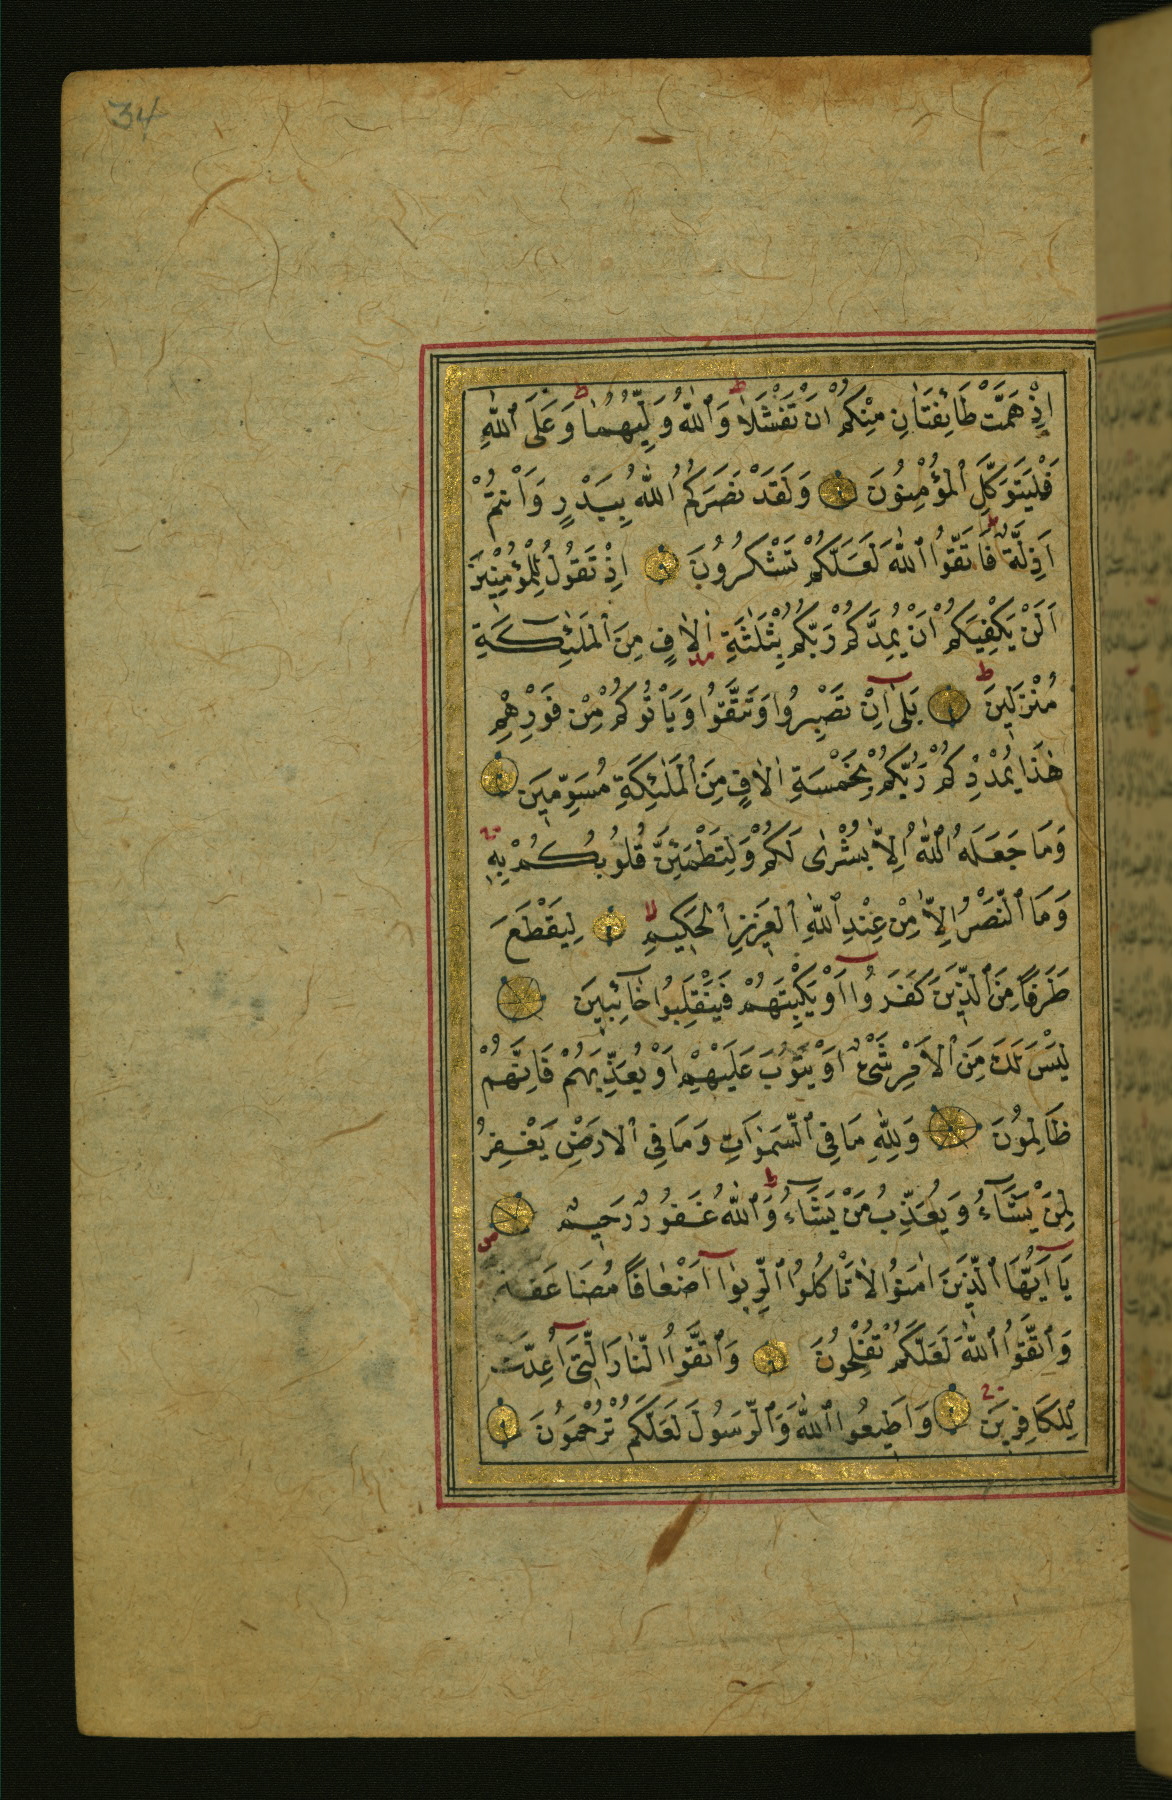 34
اِذْ هَمَّتْ طَائِفَتَانِ مِنْكُمْ اَنْ تَفْشَلَا ط وَٱللّٰهُ وَلِيُّهُمَا ط وَعَلَى ٱللّٰهِ
فَلْيَتَوَكَّلِ ٱلْمُؤْمِنُونَ وَلَقَدْ نَصَرَكُمُ ٱللّٰهُ بِبَدْرٍ وَاَنْتُمْ
اَذِلَّةٌ ط فَاتَّقُوا ٱللّٰهَ لَعَلَّكُمْ تَشْكُرُونَ اِذْ تَقُولُ لِلْمُؤْمِنِينَ
اَلَنْ يَكْفِيَكُمْ اَنْ يُمِدَّكُمْ رَبُّكُمْ بِثَلٰثَةِ اٰلَافٍ مِنَ ٱلْمَلٰئِكَةِ
مُنْزَلِينَ ط بَلٰى اِنْ تَصْبِرُوا وَتَتَّقُوا وَيَاْتُوكُمْ مِنْ فَوْرِهِمْ
هٰذَا يُمْدِدْكُمْ رَبُّكُمْ بِخَمْسَةِ اٰلَافٍ مِنَ ٱلْمَلٰئِكَةِ مُسَوِّمِينَ
وَمَا جَعَلَهُ ٱللّٰهُ اِلَّا بُشْرٰى لَكُمْ وَلِتَطْمَئِنَّ قُلُوبُكُمْ بِهِ
وَمَا ٱلنَّصْرُ اِلَّا مِنْ عِنْدِ ٱللّٰهِ ٱلْعَزِيزِ ٱلْحَكِيمِ لا لِيَقْطَعَ
طَرَفًا مِنَ ٱلَّذِينَ كَفَرُوا اَوْ يَكْبِتَهُمْ فَيَنْقَلِبُوا خَائِبِينَ
لَيْسَ لَكَ مِنَ ٱلْاَمْرِ شَىْءٌ اَوْ يَتُوبَ عَلَيْهِمْ اَوْ يُعَذِّبَهُمْ فَاِنَّهُمْ
ظَالِمُونَ وَلِلّٰهِ مَا فِى ٱلسَّمٰوَاتِ وَمَا فِى ٱلْاَرْضِ يَغْفِرُ
لِمَنْ يَشَاءُ وَيُعَذِّبُ مَنْ يَشَاءُ ط وَٱللّٰهُ غَفُورٌ رَحِيمٌ
يَا اَيُّهَا ٱلَّذِينَ اٰمَنُوا لَا تَاْكُلُوا ٱلرِّبٰوا اَضْعَافًا مُضَاعَفَةً
وَٱتَّقُوا ٱللّٰهَ لَعَلَّكُمْ تُفْلِحُونَ وَٱتَّقُوا ٱلنَّارَ ٱلَّتِى اُعِدَّتْ
لِلْكَافِرِينَ وَاَطِيعُوا ٱللّٰهَ وَٱلرَّسُولَ لَعَلَّكُمْ تُرْحَمُونَ